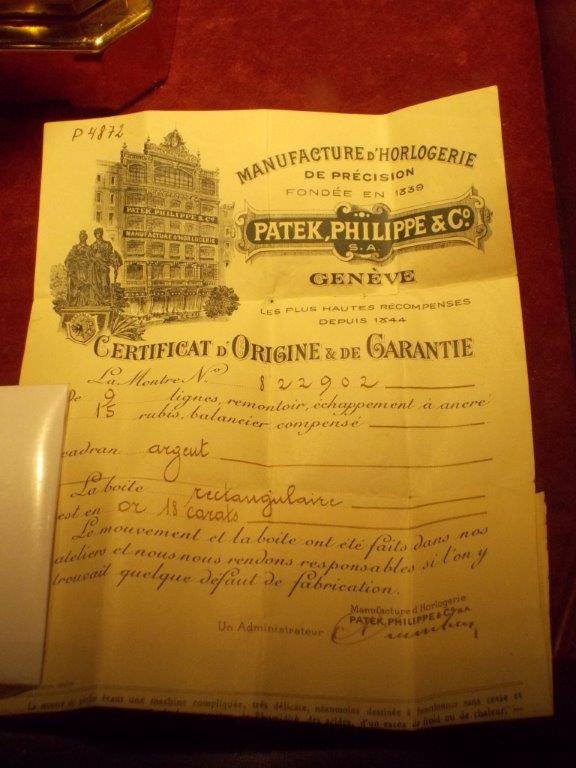 P 4872
MANUFACTURE D'HORLOGERIE
DE PRÉCISION
FONDÉE EN 1839
PATEK, PHILIPPE & Co.
S.A
GENÈVE
PATEK, PHILIPPE & Co.
MANUFACTURE D'HORLOGERIE
LES PLUS HAUTES RÉCOMPENSES
DEPUIS 1844
CERTIFICAT D'ORIGINE & DE GARANTIE
La Montre No. 822902
De 9 lignes, remontoir, échappement à ancre
15 rubis, balancier compensé
cadran argent
La boîte rectangulaire
est en or 18 carats
Le mouvement et la boîte ont été faits dans nos
ateliers et nous nous rendons responsables si l'on y
trouvait quelque défaut de fabrication.
Manufacture d'Horlogerie
PATEK, PHILIPPE & Co S.A.
Un Administrateur
La montre de poche étant une machine compliquée, très délicate, néanmoins destinée à fonctionner sans cesse et
des acides, d'un excès de froid ou de chaleur,